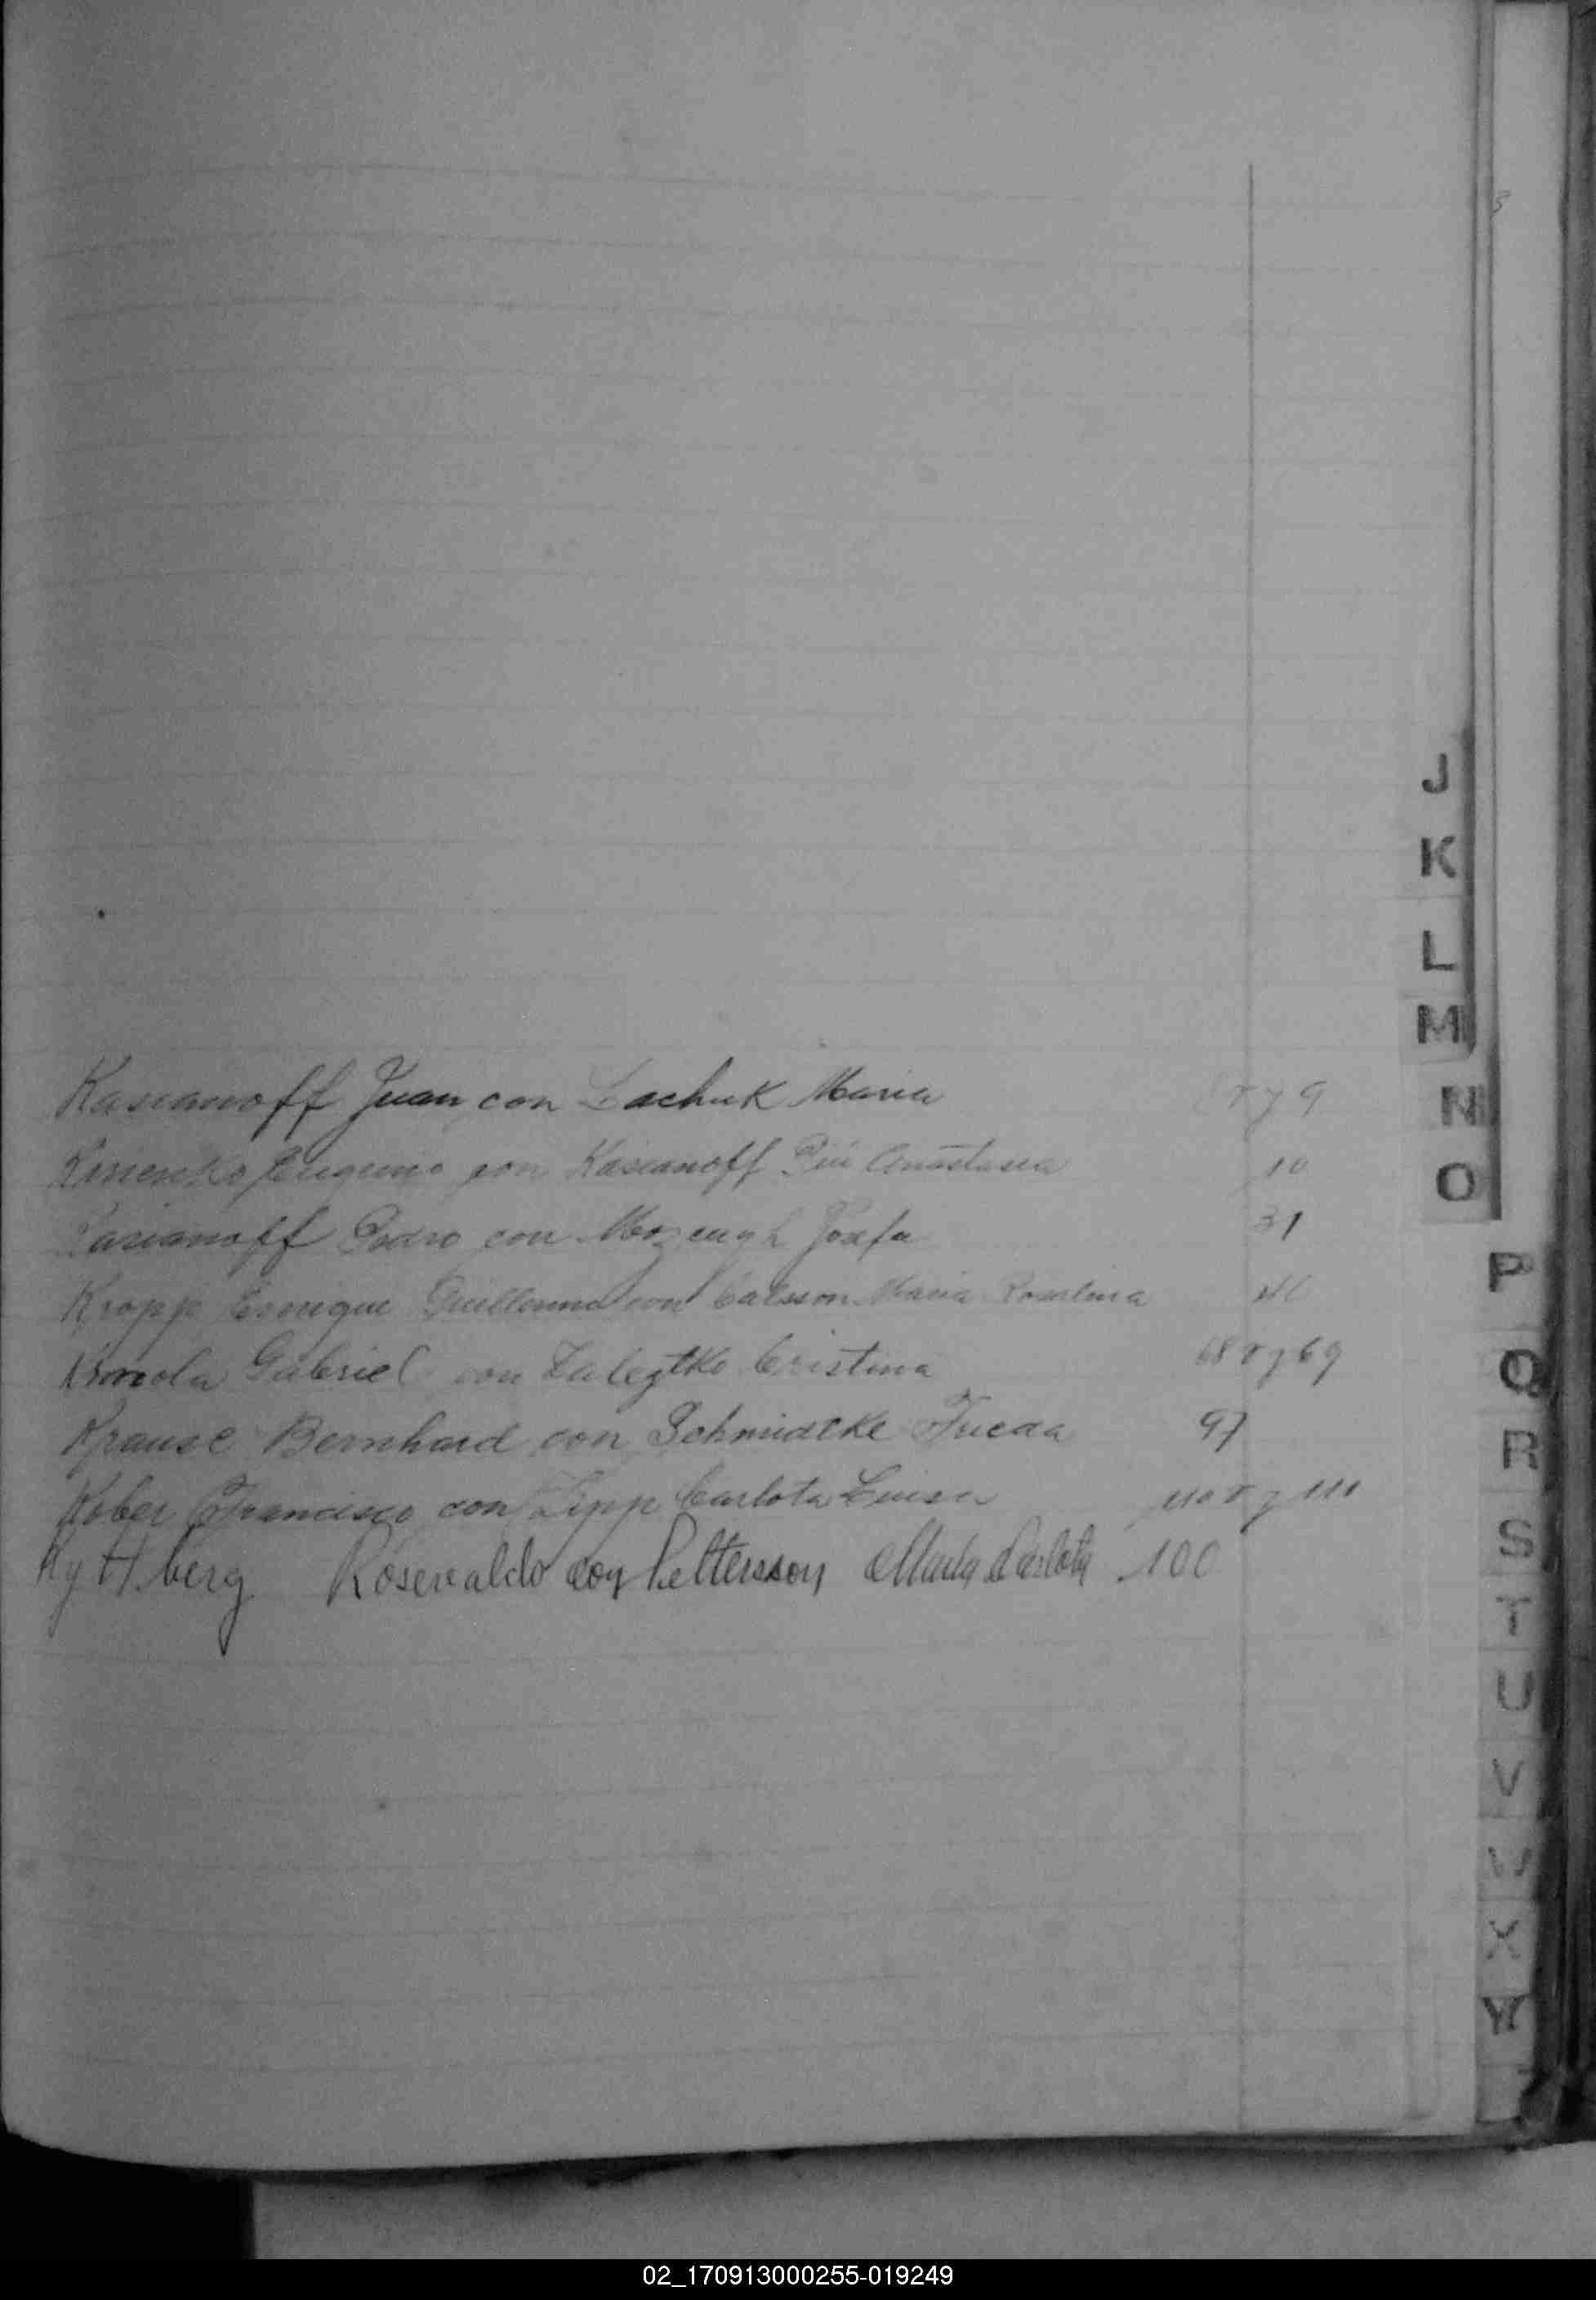 Kasianoff Juan con Lachuk Maria 8 v y 9
Kisienko Eugenio con Kasianoff Anastasia 10
Kasianoff Pedro con Josefa 31
Kropp Enrique Guillermo con Carlsson Maria
Gabriel con Cristina 68 v y 69
Krause Bernhard con Schmidtke Frieda 97
Kober Francisco con Zipp Carlota Luisa 110 v y 111
Kyttberg Rosevaldo con Pettersson Carlota 100
J
K
L
M
N
O
P
Q
R
S
T
U
V
W
X
Y
02_170913000255-019249